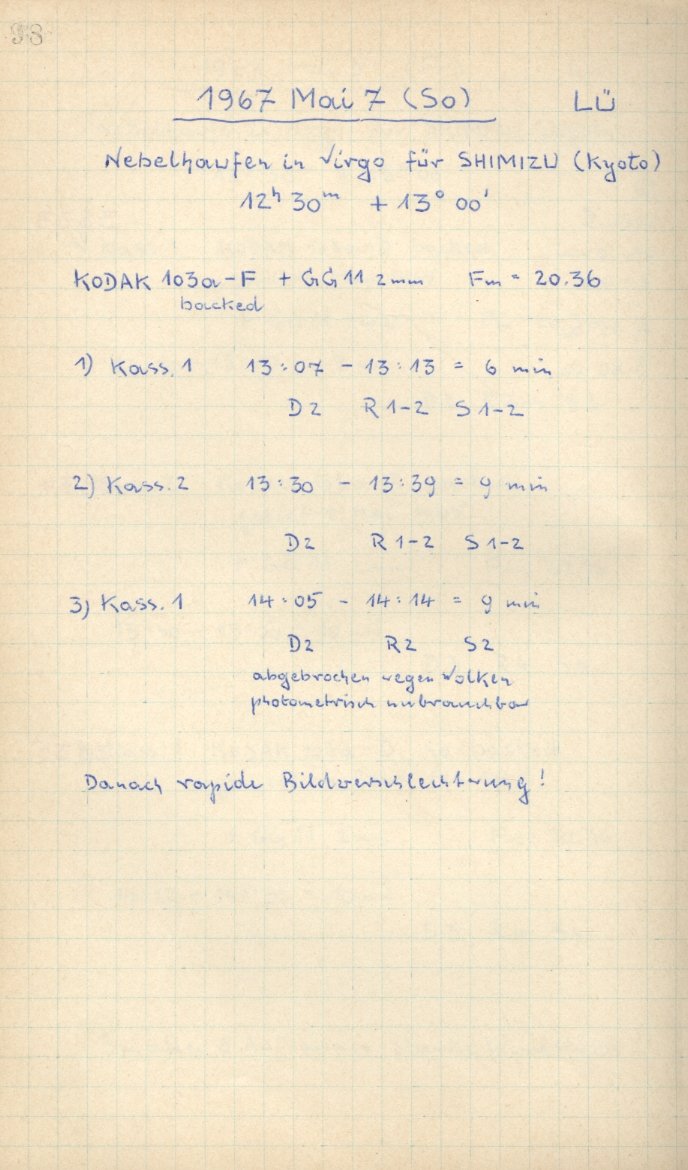 93
1967 Mai 7 (So) LÜ
Nebelhaufen in Virgo für SHIMIZU (Kyoto)
12ʰ 30ᵐ + 13° 00'
KODAK 103a-F + GG 11 2mm Fm = 20.36
backed
1) Kass. 1 13:07 - 13:13 = 6 min
D2 R 1-2 S 1-2
2) Kass. 2 13:30 - 13:39 = 9 min
D2 R 1-2 S 1-2
3) Kass. 1 14:05 - 14:14 = 9 min
D2 R2 S2
abgebrochen wegen Wolken
photometrisch unbrauchbar
Danach rapide Bildverschlechterung!